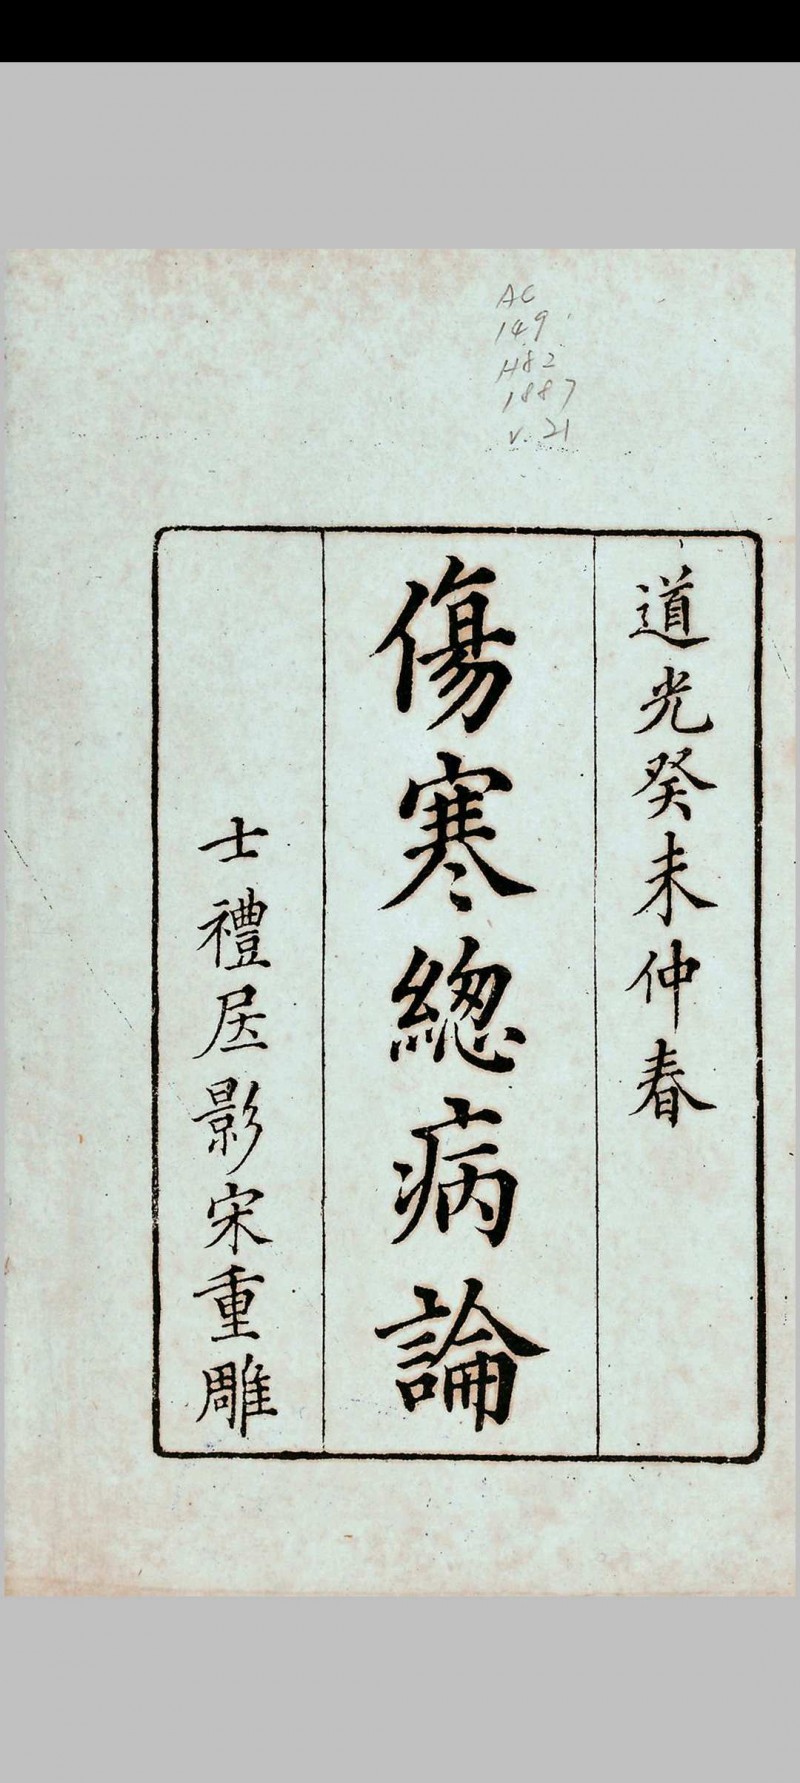 AC
149
H82
1887
v. 21
道光癸未仲春
傷寒緫病論
士禮居影宋重雕